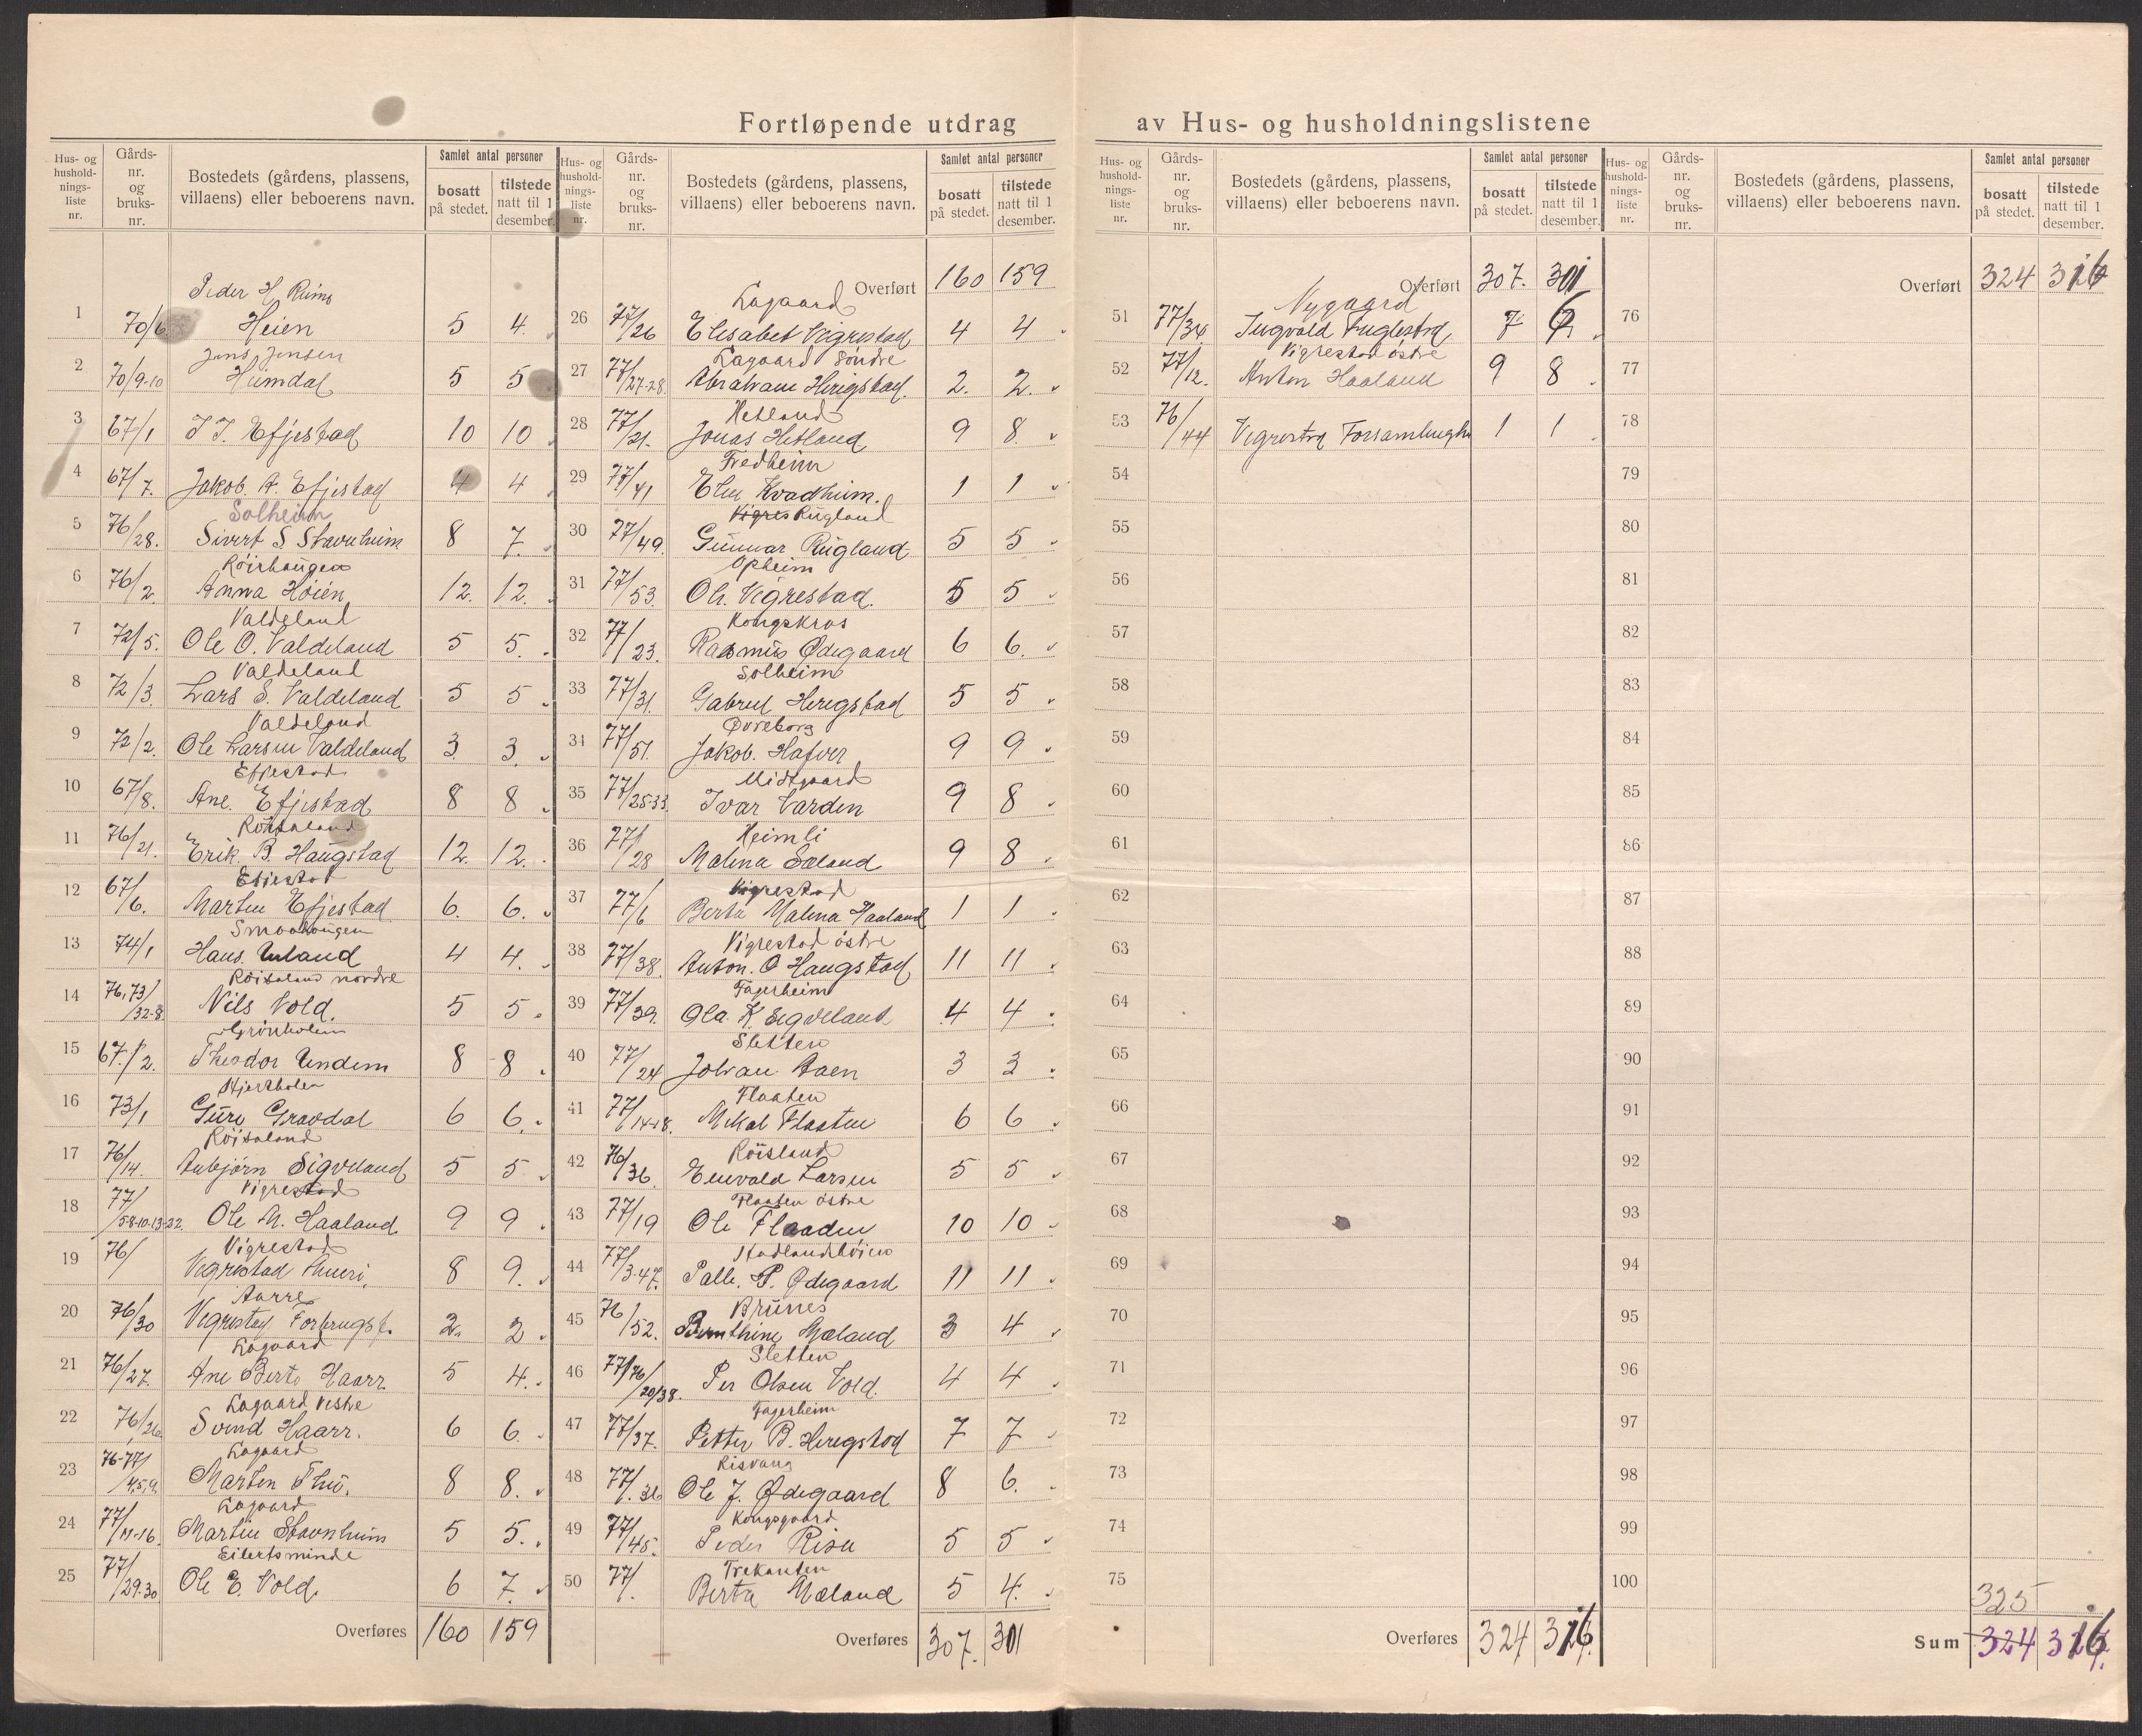 Fortløpende utdrag av Hus- og husholdningslistene
Hus- og husholdningsliste nr. Gårds-nr. og bruks-nr. Bostedets (gårdens, plassens, villaens) eller beboerens navn. Samlet antal personer bosatt på stedet. tilstede natt til 1 desember.
Peder H
1 70/6 Heien 5 4
Jens Jensen
2 70/9-10 Heimdal 5 5
3 67/1 T T. Efjestad 10 10
4 67/7. Jakob. A. Efjestad 4 4
Solheim
5 76/28. Sivert S Stavnheim 8 7.
6 76/2. Anna Höien 12. 12.
Valdeland
7 72/5. Ole O. Valdeland 5 5.
Valdeland
8 72/3. Lars S. Valdeland 5 5
Valdeland
9 72/2. Ole Larsen Valdeland 3. 3.
Efjestad
10 67/8. Ane. Efjestad 8 8
Röisaland
11 76/21. Erik. B. Haugstad 12. 12.
Efjestad
12 67/6. Martin Efjestad 6. 6.
Smaahaugen
13 74/1 Hans. Ueland 4 4.
Röisaland nordre
14 76,73/32-8. Nils Vold. 5 5.
Grönholm
15 67./2. Theodor Undem 8 8
16 73/1 Guri Gravdal 6 6.
Röisaland
17 76/14. Anbjörn Sigveland 5 5
Vigrestad
18 77/5-8-10-13-22. Ole M. Haaland 9 9
Vigrestad
19 76/ Vigrestad 8 9.
Aarre
20 76/30 Vigrestad Forbrugsf. 2. 2
Lagaard
21 76/27. Ane Berta Haarr 5 4.
Lagaard vestre
22 76/26 Svend Haarr. 6 6.
Lagaard
23 76-77/4,5,9. Marten Thu. 8 8.
Lagaard
24 77/11-16. Martin Stavnheim 5 5.
Eilertsminde
25 77/29-30 Ole E. Vold. 6 7.
Overføres 160 159
Hus- og husholdningsliste nr. Gårds-nr. og bruks-nr. Bostedets (gårdens, plassens, villaens) eller beboerens navn. Samlet antal personer bosatt på stedet. tilstede natt til 1 desember.
Overført 160 159
Lagaard
26 77/26 Elisabet Vigrestad 4 4
Lagaard söndre
27 77/27-28. Abraham Heregstad. 2. 2.
Hetland
28 77/21. Jonas Hetland 9 8.
Fredheim
29 77/41 Elen Kvadheim. 1 1
Vigres Rugland
30 77/49. Gunnar Rugland 5 5
Opheim
31 77/53. Ole. Vigrestad. 5 5
Kongskros
32 77/23. Rasmus Ødegaard 6 6.
Solheim
33 77/31. Gabriel Heregstad 5 5
Øvreborg
34 77/51. Jakob. Hafver 9 9
Midtgaard
35 77/25-33. Ivar Varden 9 8
Heimli
36 77/28 Malena Sæland 9 8
Vigrestad
37 77/6 Berta Malena Haaland 1 1
Vigrestad östre
38 77/38. Anton. O Haugstad 11 11
Fagerheim
39 77/39. Ola K. Sigveland 4 4
Sletten
40 77/24 Johan Aaen 3 3
Flaaten
41 77/14-18. Mikal Flaaten 6 6
Röisland
42 76/36. Enevald Larsen 5 5
Flaaten östre
43 77/19 Ole Flaaden 10 10
44 77/3-47. Palle. P. Ødegaard 11 11
Brunes
45 76/52. Bernthine Mæland 3 4
Sletten
46 77/76/20/38. Per Olsen Vold. 4 4
Fagerheim
47 77/37. Petter B. Heregstad 7 7
Risvang
48 77/.36 Ole J. Ødegaard 8 6.
Kongsgaard
49 77/45. Peder Risa 5 5
Trekanten
50 77/. Berta Mæland 5 4.
Overføres 307. 301
Hus- og husholdningsliste nr. Gårds-nr. og bruks-nr. Bostedets (gårdens, plassens, villaens) eller beboerens navn. Samlet antal personer bosatt på stedet. tilstede natt til 1 desember.
Overført 307. 301
Nygaard
51 77/34 Ingvald Fuglestad 7 6
Vigrestad östre
52 77/12. Anton Haaland 9 8
53 76/44 Vigrestad 1 1
54
55
56
57
58
59
60
61
62
63
64
65
66
67
68
69
70
71
72
73
74
75
Overføres 324 316
Hus- og husholdningsliste nr. Gårds-nr. og bruks-nr. Bostedets (gårdens, plassens, villaens) eller beboerens navn. Samlet antal personer bosatt på stedet. tilstede natt til 1 desember.
Overført 324 316
76
77
78
79
80
81
82
83
84
85
86
87
88
89
90
91
92
93
94
95
96
97
98
99
100
325
Sum 324 316